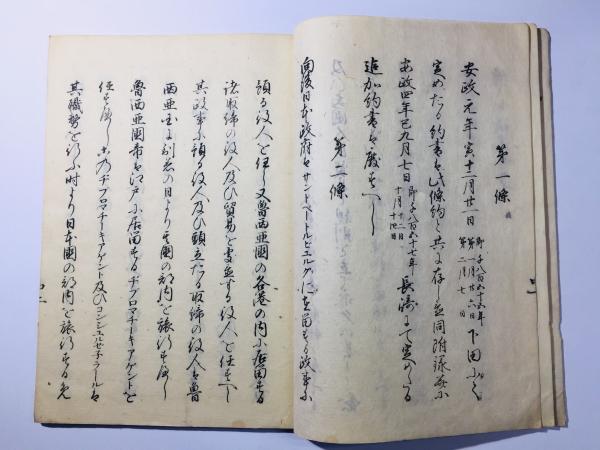 第一條
安政元年寅十二月廿一日 即千八百五十五年 第一月廿六日 第二月七日 下田にて
定めたる約書は此條約と共に存し並同附録并に
安政四年巳九月七日 即千八百五十七年 十月十二日 十月廿四日 長崎にて定めたる
追加約書は廃すへし
第二條
向後日本政府はサンクトペートルビュルグに在留する政事に
預る役人を任し又魯西亜國の各港の内に居留する
諸取締の役人及ひ貿易を處置する役人を任すへし
其政事に預る役人及ひ頭立たる取締の役人は魯
西亜國に到着の日より其國の部内を旅行すへし
魯西亜國帝は江戸に居留するヂプロマチーキアゲントを
任すへし此ヂプロマチーキアゲント及ひコンシュルゼネラールは
其職務を行ふ時より日本國の部内を旅行する免